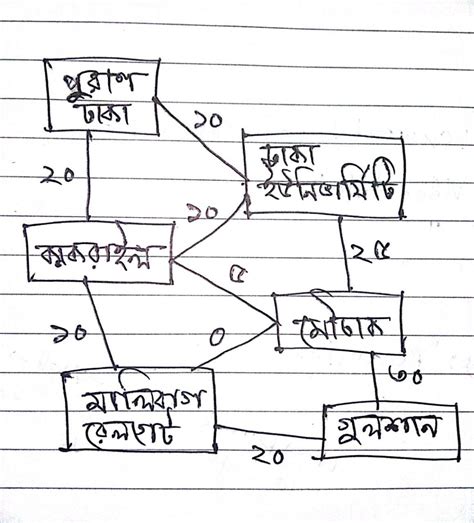 পুরান
ঢাকা
১০
ঢাকা
ইউনিভার্সিটি
২০
কাকরাইল
২৫
৫
মৌচাক
১০
০
৩০
মালিবাগ
রেলগেট
গুলশান
২০